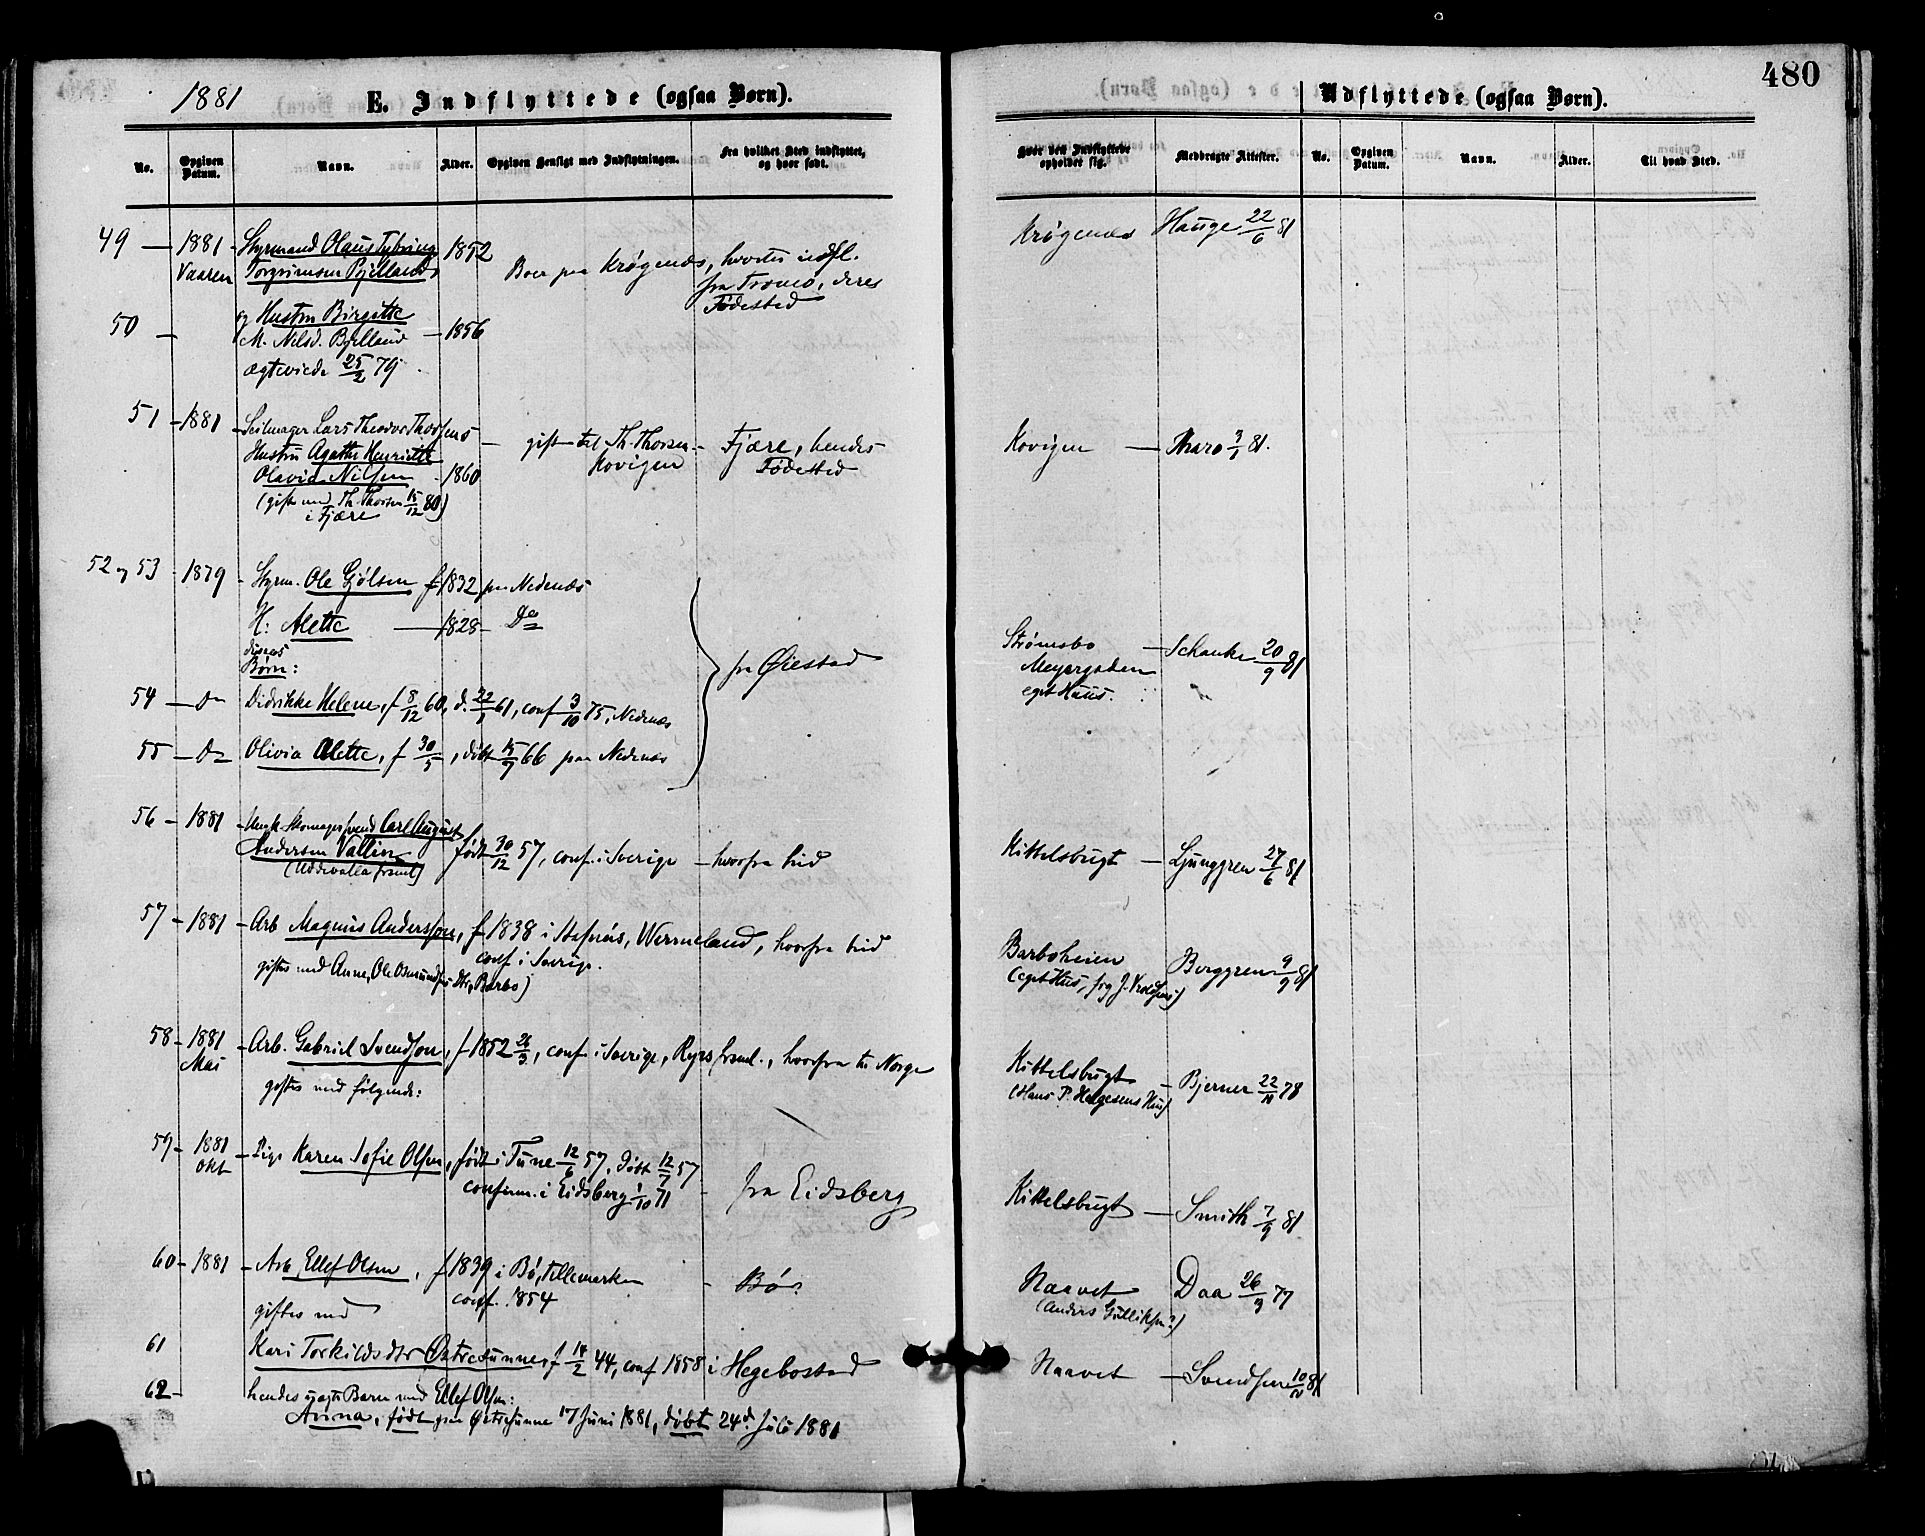 480
1881 E. Indflyttede (ogsaa Børn).
Udflyttede (ogsaa Børn).
No. Opgiven Datum. Navn. Alder. Opgiven Hensigt med Indflytningen. Fra hvilket Sted indflyttet, og hvor født.
Hvor den Indflyttede opholder sig. Medbragte Attester. No. Opgiven Datum. Navn. Alder. Til hvad Sted.
49 — 1881 - Styrmand Olaus Tybring 1852
Vaaren Torgrimsen Bjelland
Boer paa Krøgenæs, hvortil indfl.
fra Tromø, deres
Fødested
Krøgenæs Hauge 22/6 81
50 — og Hustru Birgitte
M. Nelsd. Bjelland — 1856
ægteviede 25/2 79
51 - 1881 - Seilmager Lars Theodor Thorsens
Hustru Agathe Henriette
Olavia Nilsen - 1860
(gift med Th. Thorsen 15/12 80)
i Fjære
gift til Th. Thorsen - Fjære, hendes
Kovigen Fødested
Kovigen — Tharo 3/1 81.
52 og 53 - 1879 - Styrm. Ole Gjølsen f 1832 paa Nedenæs
H: Alette — 1828 - Do
disses
Børn:
fra Øiestad
Strømsbo — Schanke 20/9 81
Meyergaden
eget Huus.
54 — Do Didrikke Helene, f 8/12 60, d. 22/1 61, conf 3/10 75, Nedenæs
55 — Do Olivia Alette, f 30/5, døbt 15/7 66 paa Nedenæs
56 - 1881 - Ungk. Skomagersvend Carl August
Andersen Vallin født 30/12 57, conf. i Sverige — hvorfra hid
(Uddevalla framl)
Kittelsbugt — Ljunggren 27/6 81
57 - 1881 - Arb Magnus Andersson, f 1838 i Stafnäs, Wermeland, hvorfra hid
conf i Sverige.
giftes med Anne, Ole Osmundsens Dtr, Barbo)
Barboheien Berggren 9/9 81
(eget Hus,
58 - 1881 - Arb. Gabriel Svendson, f 1852 26/3, conf i Sverige, Ryrs framl., hvorfra til Norge
Mai
giftes med følgende:
Kittelsbugt - Bjerner 22/11 78
(Hans P. Helgesens Hus)
59 - 1881 - Pige Karen Sofie Olsen, født i Tune 12/6 57, døbt 12/7 57
Okt confirm. i Eidsberg 1/10 71 - fra Eidsberg
Kittelsbugt — Smith 7/9 81
60 - 1881 - Arb Ellef Olsen, f 1839 i Bø, Tellemarken - Bø
conf. 1854
giftes med
Naavet Daa 26/9 77
(Anders Gulliksen?)
61 Kari Torkildsdtr Østretunne, f 14/2 44, conf 1858 i Hegebostad
Naavet — Svendsen 10/11 81
62 - hendes uægte Barn med Ellef Olsen:
Anna, født paa Østretunne 17 Juni 1881, døbt 24d Juli 1881